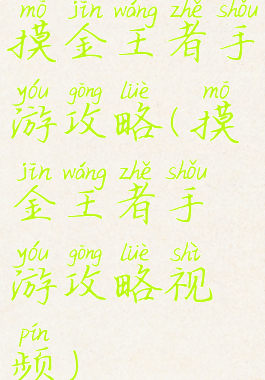 mō jīn wáng zhě shǒu
摸金王者手
yóu gōng lüè mō
游攻略(摸
jīn wáng zhě shǒu
金王者手
yóu gōng lüè shì
游攻略视
pín
频)